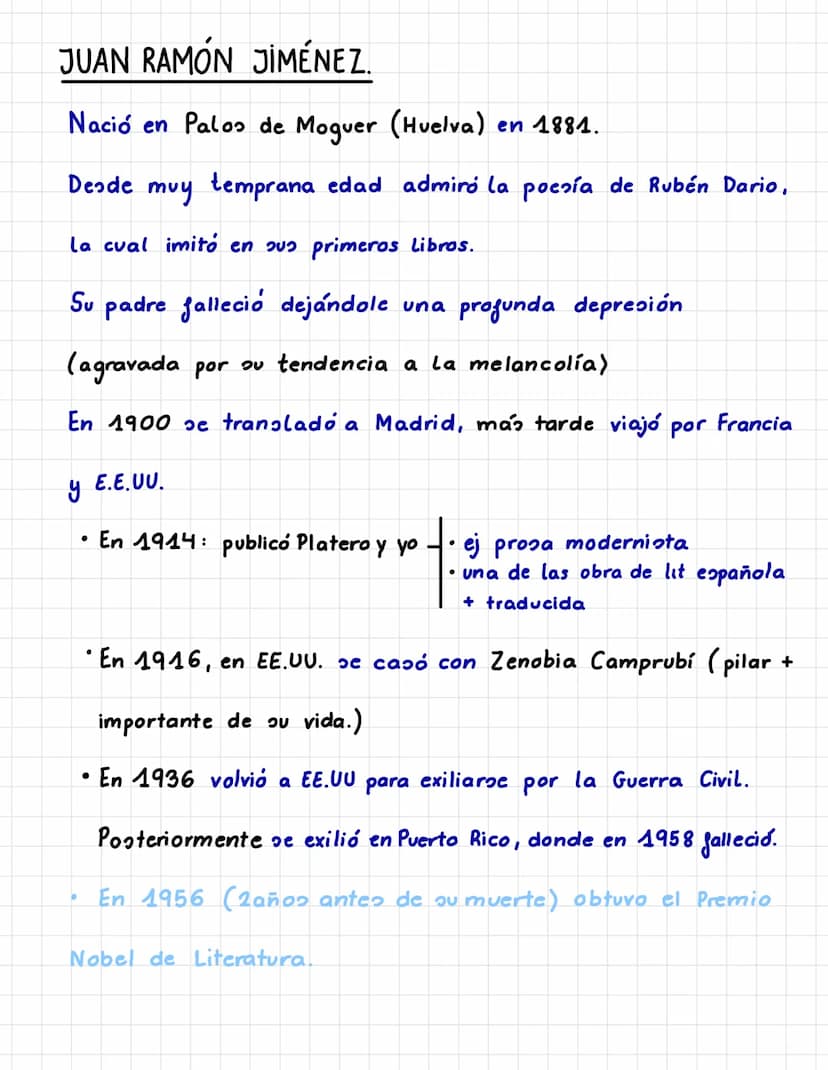 JUAN RAMÓN JIMÉNEZ.
Nació en Palos de Moguer (Huelva) en 1881.
Desde muy temprana edad admiró la poesía de Rubén Dario,
la cual imitó en sus primeros libros.
Su padre falleció dejándole una profunda depresión
(agravada por su tendencia a la melancolía)
En 1900 se transladó a Madrid, más tarde viajó por Francia
y E.E.UU.
• En 1914: publicó Platero y yo
• ej prosa modernista
• una de las obra de lit española
+ traducida
• En 1916, en EE.UU. se casó con Zenobia Camprubí (pilar +
importante de su vida.)
• En 1936 volvió a EE.UU para exiliarse por la Guerra Civil.
Posteriormente se exilió en Puerto Rico, donde en 1958 falleció.
• En 1956 (2años antes de su muerte) obtuvo el Premio
Nobel de Literatura.